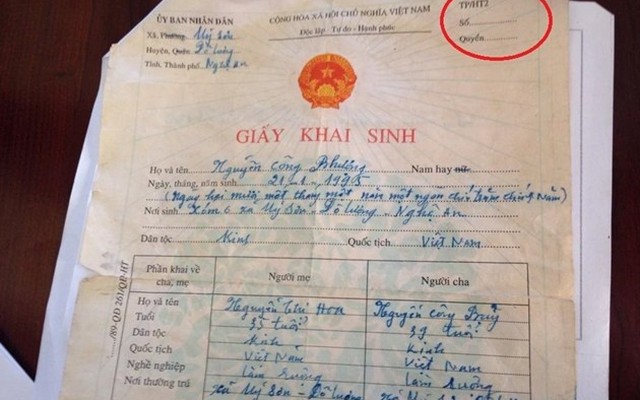 ỦY BAN NHÂN DÂN
Xã, Phường Mỹ Sơn
Huyện, Quận Đô Lương
Tỉnh, Thành phố Nghệ An
CỘNG HÒA XÃ HỘI CHỦ NGHĨA VIỆT NAM
Độc lập - Tự do - Hạnh phúc
TP/HT2
Số
Quyển
GIẤY KHAI SINH
Họ và tên Nguyễn Công Phượng Nam hay nữ
Ngày, tháng, năm sinh 21-1-1995
(Ngày hai mươi một tháng một năm một ngàn chín trăm chín năm)
Nơi sinh Xóm 6 xã Mỹ Sơn - Đô Lương - Nghệ An
Dân tộc Kinh Quốc tịch Việt Nam
/89-QĐ 261/QĐ-HT
Phần khai về cha, mẹ Người mẹ Người cha
Họ và tên Nguyễn Thị Hoa Nguyễn Công Bảy
Tuổi 35 tuổi 39 tuổi
Dân tộc Kinh Kinh
Quốc tịch Việt Nam Việt Nam
Nghề nghiệp Làm ruộng Làm ruộng
Nơi thường trú Xã Mỹ Sơn - Đô Lương Xã Mỹ Sơn